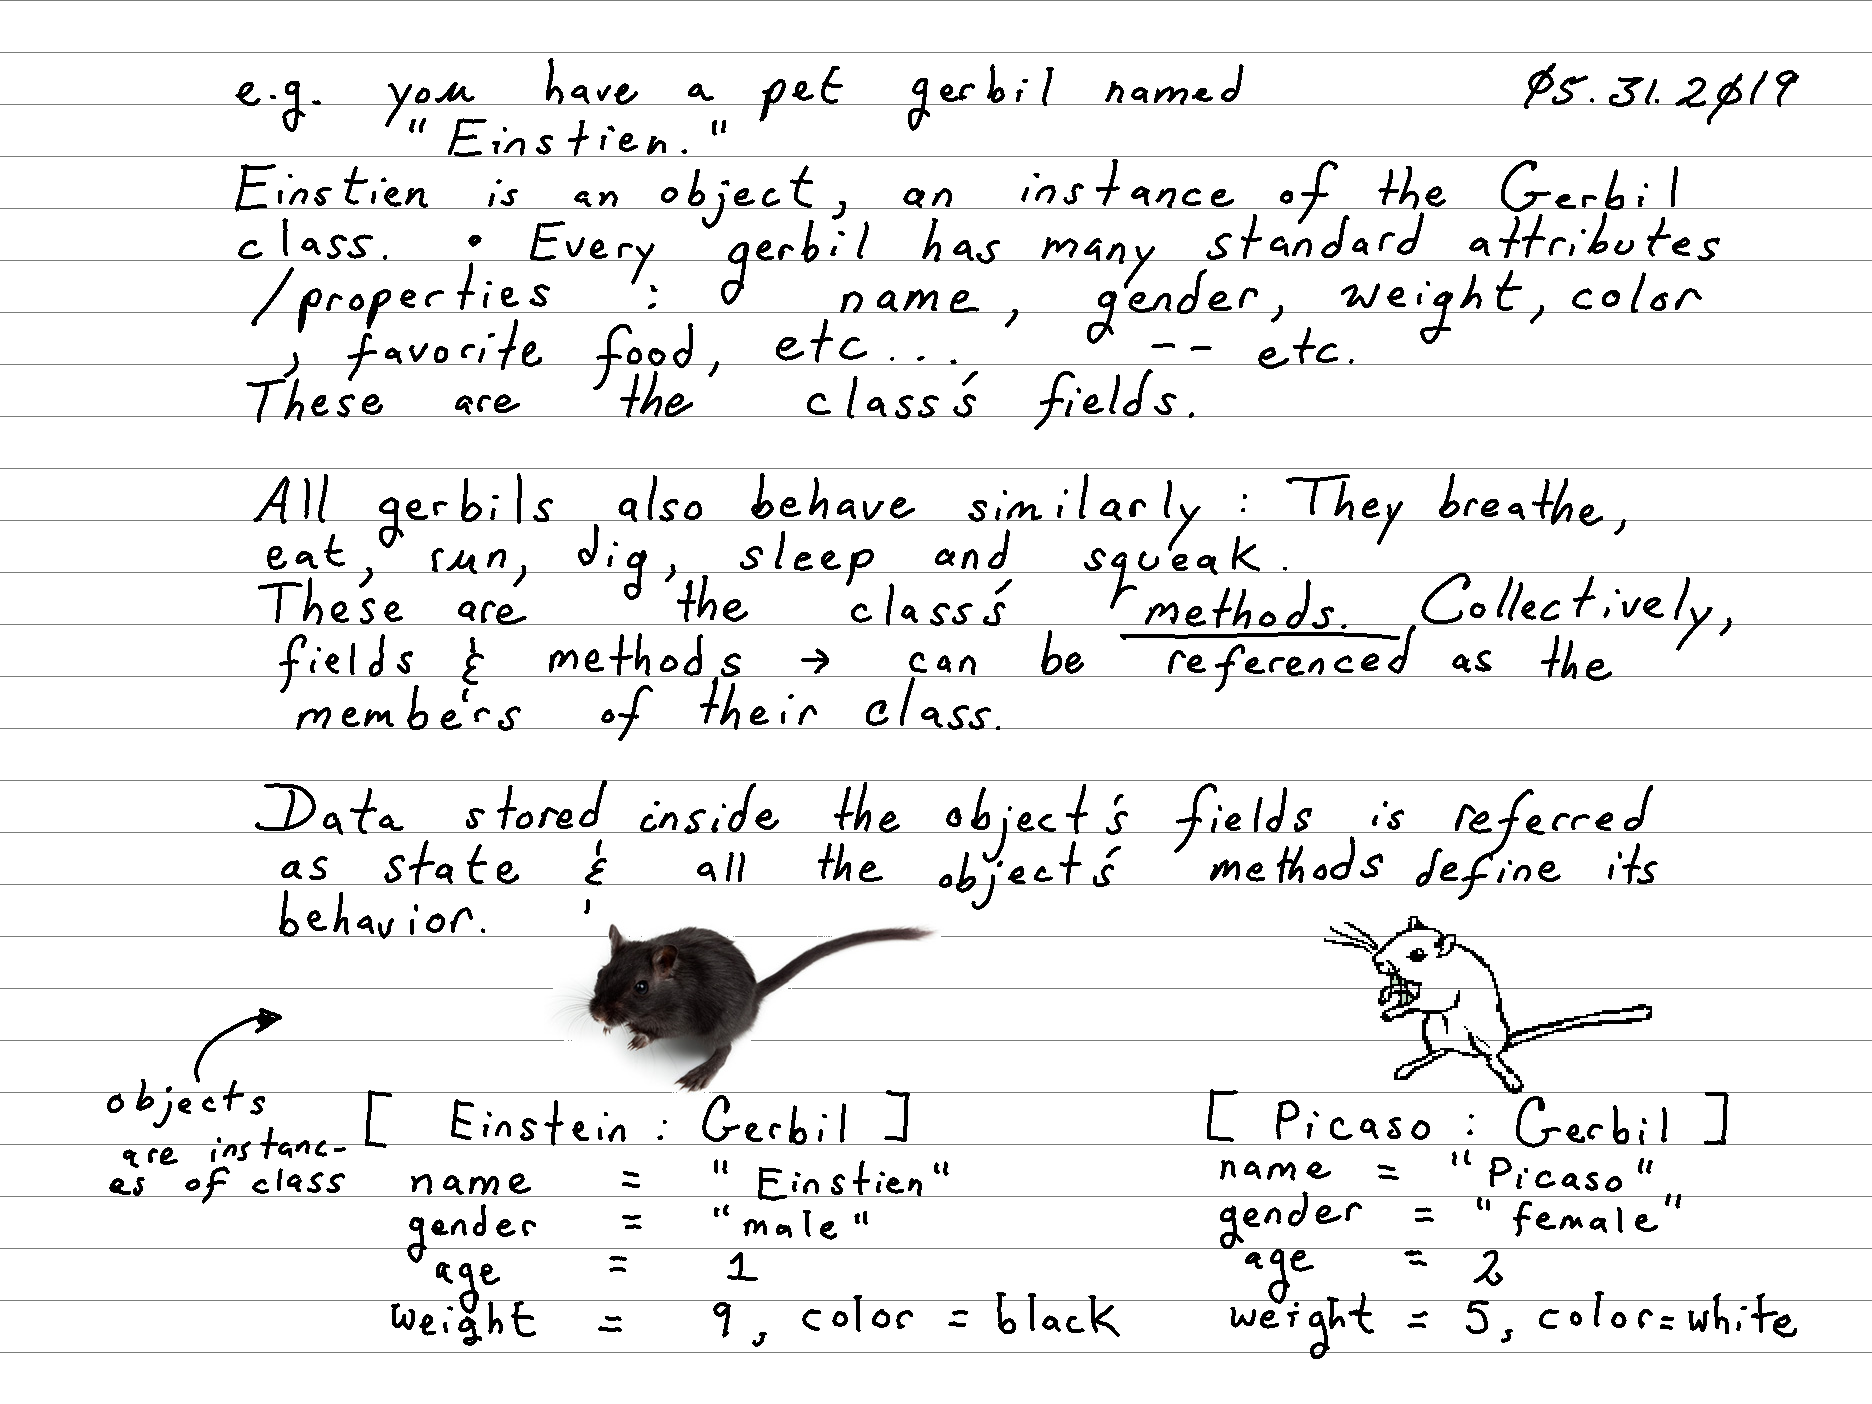 e.g. you have a pet gerbil named
Ø5.31.2Ø19
"Einstien."
Einstien is an object, an instance of the Gerbil
class. • Every gerbil has many standard attributes
/properties : name, gender, weight, color
, favorite food, etc... -- etc.
These are the class's fields.
All gerbils also behave similarly : They breathe,
eat, run, dig, sleep and squeak.
These are the class's methods. Collectively,
fields & methods → can be referenced as the
members of their class.
Data stored inside the object's fields is referred
as state & all the object's methods define its
behavior.
objects
are instanc-
es of class
[ Einstein : Gerbil ]
name = "Einstien"
gender = "male"
age = 1
weight = 9, color = black
[ Picaso : Gerbil ]
name = "Picaso"
gender = "female"
age = 2
weight = 5, color=white